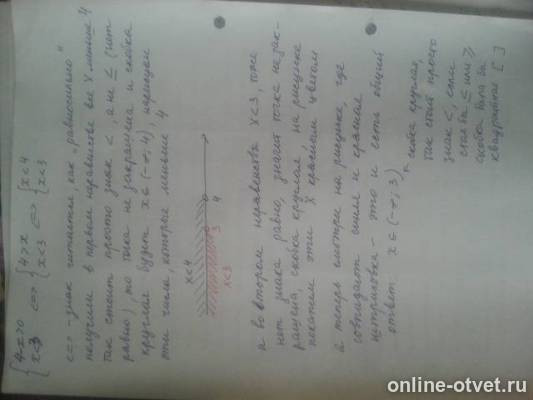 {4-x>0 <=> {4>x <=> {x<4
{x<3 {x<3 {x<3
<=> - знак читается, как "равносильно"
получим в первом неравенстве все x меньше 4
так стоит просто знак <, а не ≤ (нет
равно), то точка не закрашена и скобка
круглая будет x∈(-∞, 4)
эти числа, которые меньше 4
x<4
3 4
x<3
а во втором неравенства x<3, тоже
нет знака равно, значит точка не зак-
рашена, скобка круглая, на рисунке
покажем эти x красным цветом
а теперь смотрим на рисунке, где
совпадают синие и красные
штриховки - это и есть общий
ответ x∈(-∞, 3)
скобка круглая,
так стоит просто
знак <, если
стояло ≤ или ≥,
скобка была бы
квадратной [ ]
online-otvet.ru